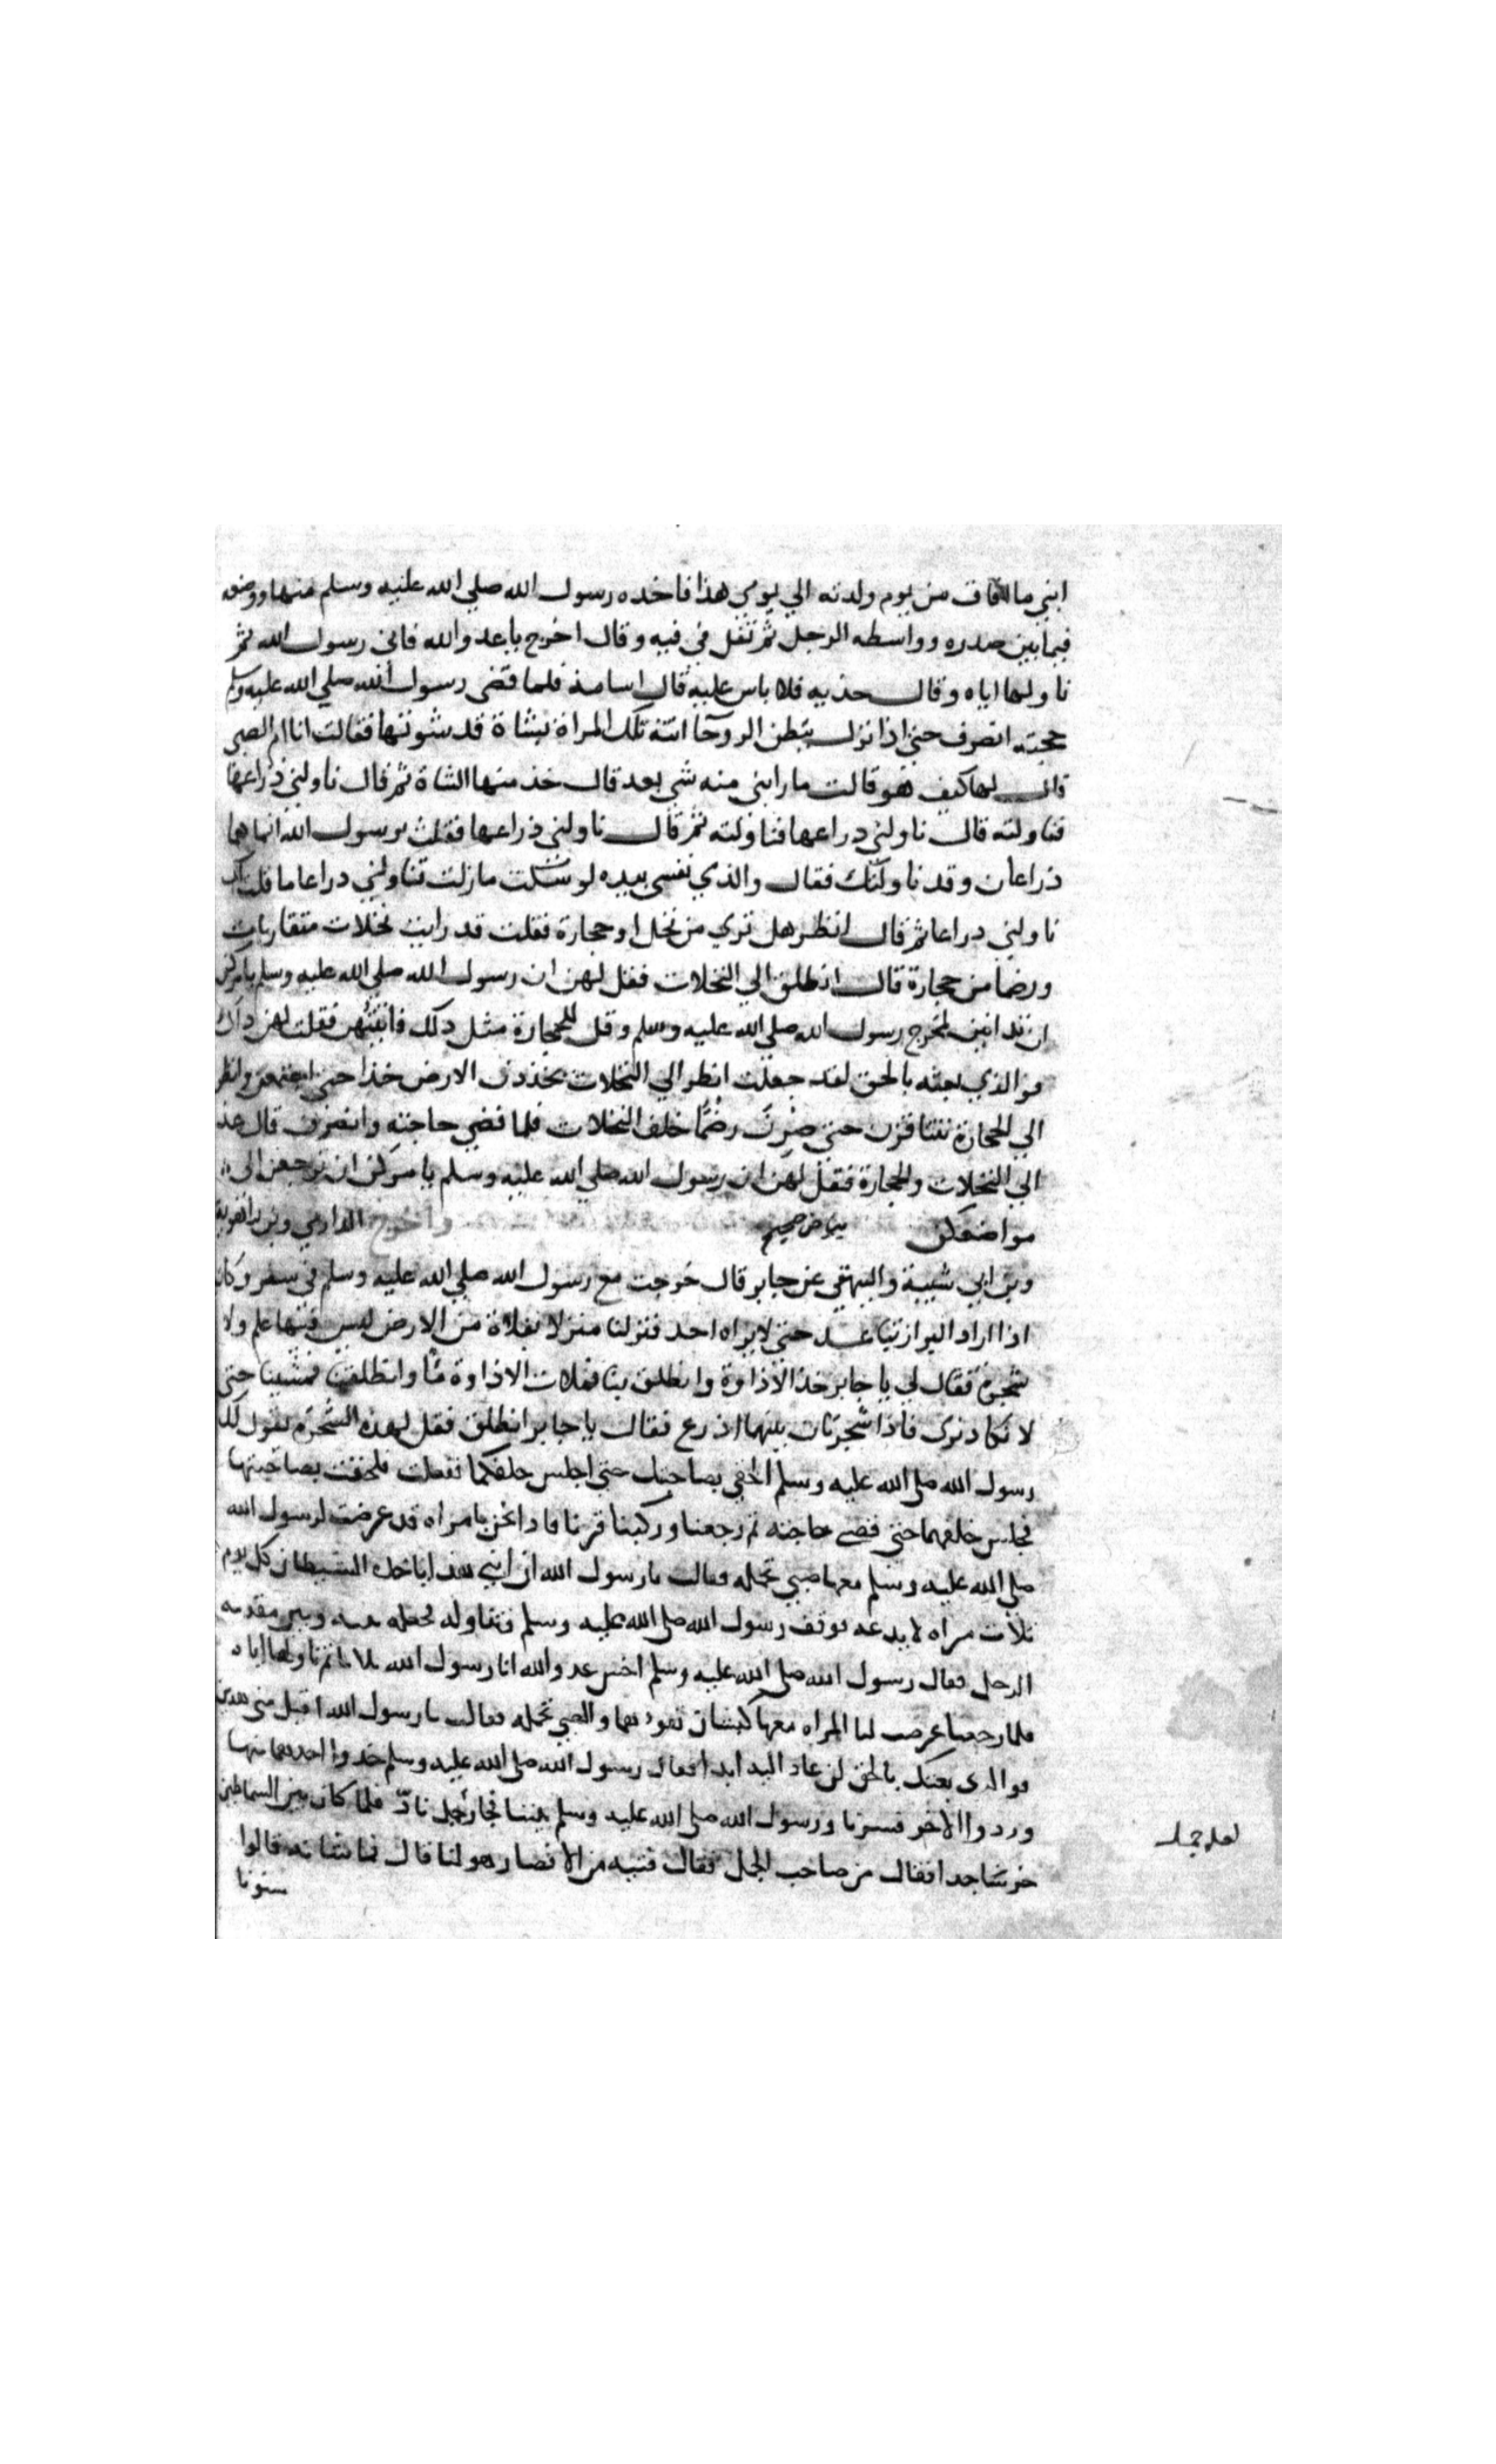 ابني ما افاق من يوم ولدته الي يومي هذا فاخده رسول الله صلي الله عليه وسلم منها ووضعه
فيما بين صدره وواسطه الرحل ثم تفل في فيه وقال اخرج يا عدو الله فاني رسول الله ثم
ناولها اياه وقال خذيه فلا باس عليه قال اسامة فلما قضى رسول الله صلي الله عليه وسلم
حجته انصرف حتى اذا نزل ببطن الروحا اتته تلك المراة بشاة قد شوتها فقالت انا ام الصبي
قال لها كيف هو قالت ما رابني منه شي بعد قال خذ منها الشاة ثم قال ناولني ذراعها
فناولته قال ناولني دراعها فناولته ثم قال ناولني ذراعها فقلت يرسول الله انما هما
ذراعان وقد ناولتك فقال والذي نفسي بيده لو سكت مازلت تناولني دراعا ما قلت لك
ناولني دراعا ثم قال انظر هل تري من نخل او حجارة فقلت قد رايت نخلات متقاربات
ورضما من حجارة قال انطلق الي النخلات فقل لهن ان رسول الله صلي الله عليه وسلم يامركن
ان تدانين لمخرج رسول الله صلي الله عليه وسلم وقل للحجارة مثل دلك فاتيتهن فقلت لهن داك
فوالذي بعثه بالحق لقد جعلت انظر الي النخلات يخددن الارض خدا حتى اجتمعن وانظر
الي الحجارة يتنافزن حتى صرن رضما خلف النخلات فلما قضي حاجته وانصرف قال عد
الي النخلات والحجارة فقل لهن ان رسول الله صلي الله عليه وسلم يامركن ان ترجعن الي
مواضعكن بياض صحيح واخرج الدارمي وبن راهوية
وبن ابي شيبة والبيهقي عن جابر قال خرجت مع رسول الله صلي الله عليه وسلم في سفر وكان
اذا اراد البراز تباعد حتى لا يراه احد فنزلنا منزلا بفلاة من الارض ليس فيها علم ولا
شجرة فقال لي يا جابر خذ الاداوة وانطلق بنا فملات الاداوة ما وانطلقنا فمشينا حتى
لا نكاد نرى فاذا شجرتان بينهما اذرع فقال يا جابر انطلق فقل لهذه الشجرة يقول لك
رسول الله صلي الله عليه وسلم الحقي بصاحبتك حتى اجلس خلفكما ففعلت فلحقت بصاحبتها
فجلس خلفهما حتى قضى حاجته ثم رجعنا وركبنا فسرنا فاذا نحن بامراه قد عرضت لرسول الله
صلي الله عليه وسلم معها صبي تحمله فقالت يا رسول الله ان ابني هذا ياخذه الشيطان كل يوم
ثلاث مراه لا يدعه فوقف رسول الله صلي الله عليه وسلم فتناوله فجعله بينه وبين مقدمه
الرحل فقال رسول الله صلي الله عليه وسلم اخس عدو الله انا رسول الله ثلاثا ثم ناولها اياه
فلما رجعنا عرضت لنا المراه معها كبشان تقودهما والصبي تحمله فقالت يا رسول الله اقبل مني هدين
فوالذي بعثك بالحق ان عاد اليه ابدا فقال رسول الله صلي الله عليه وسلم خدوا احدهما منها
وردوا الاخر فسرنا ورسول الله صلي الله عليه وسلم بيننا فجا رجل نادّ فلما كان بين السماطين
خر ساجدا فقال من صاحب الجمل فقال فتيه من الانصار هو لنا قال فما شانه قالوا
سنونا
لعله جمل